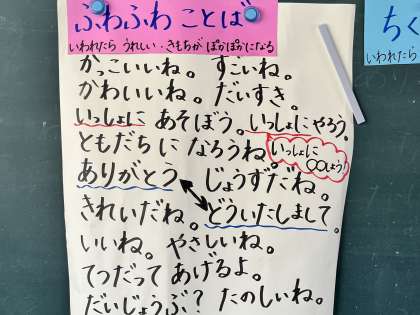 ふわふわ ことば
いわれたら うれしい・きもちが ぽかぽかになる
かっこいいね。 すごいね。
かわいいね。 だいすき。
いっしょに あそぼう。 いっしょに やろう。
ともだちに なろうね。
いっしょに
〇〇しよう!
ありがとう じょうずだね。
きれいだね。 どういたしまして。
いいね。 やさしいね。
てつだって あげるよ。
だいじょうぶ? たのしいね。
ちく
いわれたら